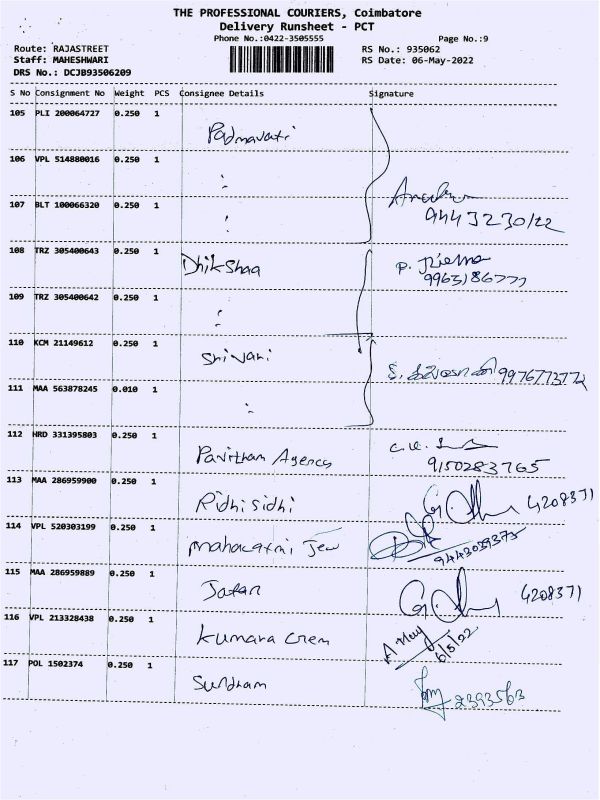 THE PROFESSIONAL COURIERS, Coimbatore
Delivery Runsheet - PCT
Phone No.:0422-3505555 Page No.:9
Route: RAJASTREET RS No.: 935062
Staff: MAHESHWARI RS Date: 06-May-2022
DRS No.: DCJB93506209
S No Consignment No Weight PCS Consignee Details Signature
105 PLI 200064727 0.250 1
Padmavati
106 VPL 514880016 0.250 1
107 BLT 100066320 0.250 1
9443230122
108 TRZ 305400643 0.250 1
Dhikshaa P.
9963186777
109 TRZ 305400642 0.250 1
110 KCM 21149612 0.250 1
Shivani 9976773772
111 MAA 563878245 0.010 1
112 HRD 331395803 0.250 1
Pavitham Agency
9150283765
113 MAA 286959900 0.250 1
Ridhi sidhi 4208371
114 VPL 520303199 0.250 1
mahalaxmi Jew 9443039375
115 MAA 286959889 0.250 1
Jatan 4208371
116 VPL 213328438 0.250 1
Kumara Gem 6/5/22
117 POL 1502374 0.250 1
Sundram 2393563